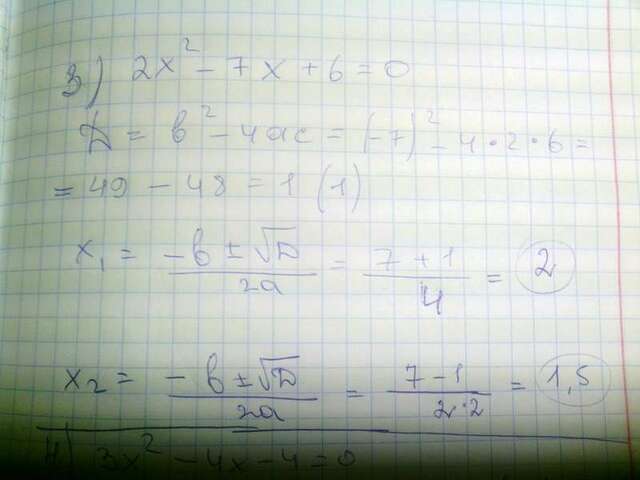 3) 2x² - 7x + 6 = 0
D = b² - 4ac = (-7)² - 4·2·6 =
= 49 - 48 = 1 (1)
x₁ = (-b ± √D)/(2a) = (7 + 1)/4 = 2
x₂ = (-b ± √D)/(2a) = (7 - 1)/(2·2) = 1,5
4) 3x² - 4x - 4 = 0